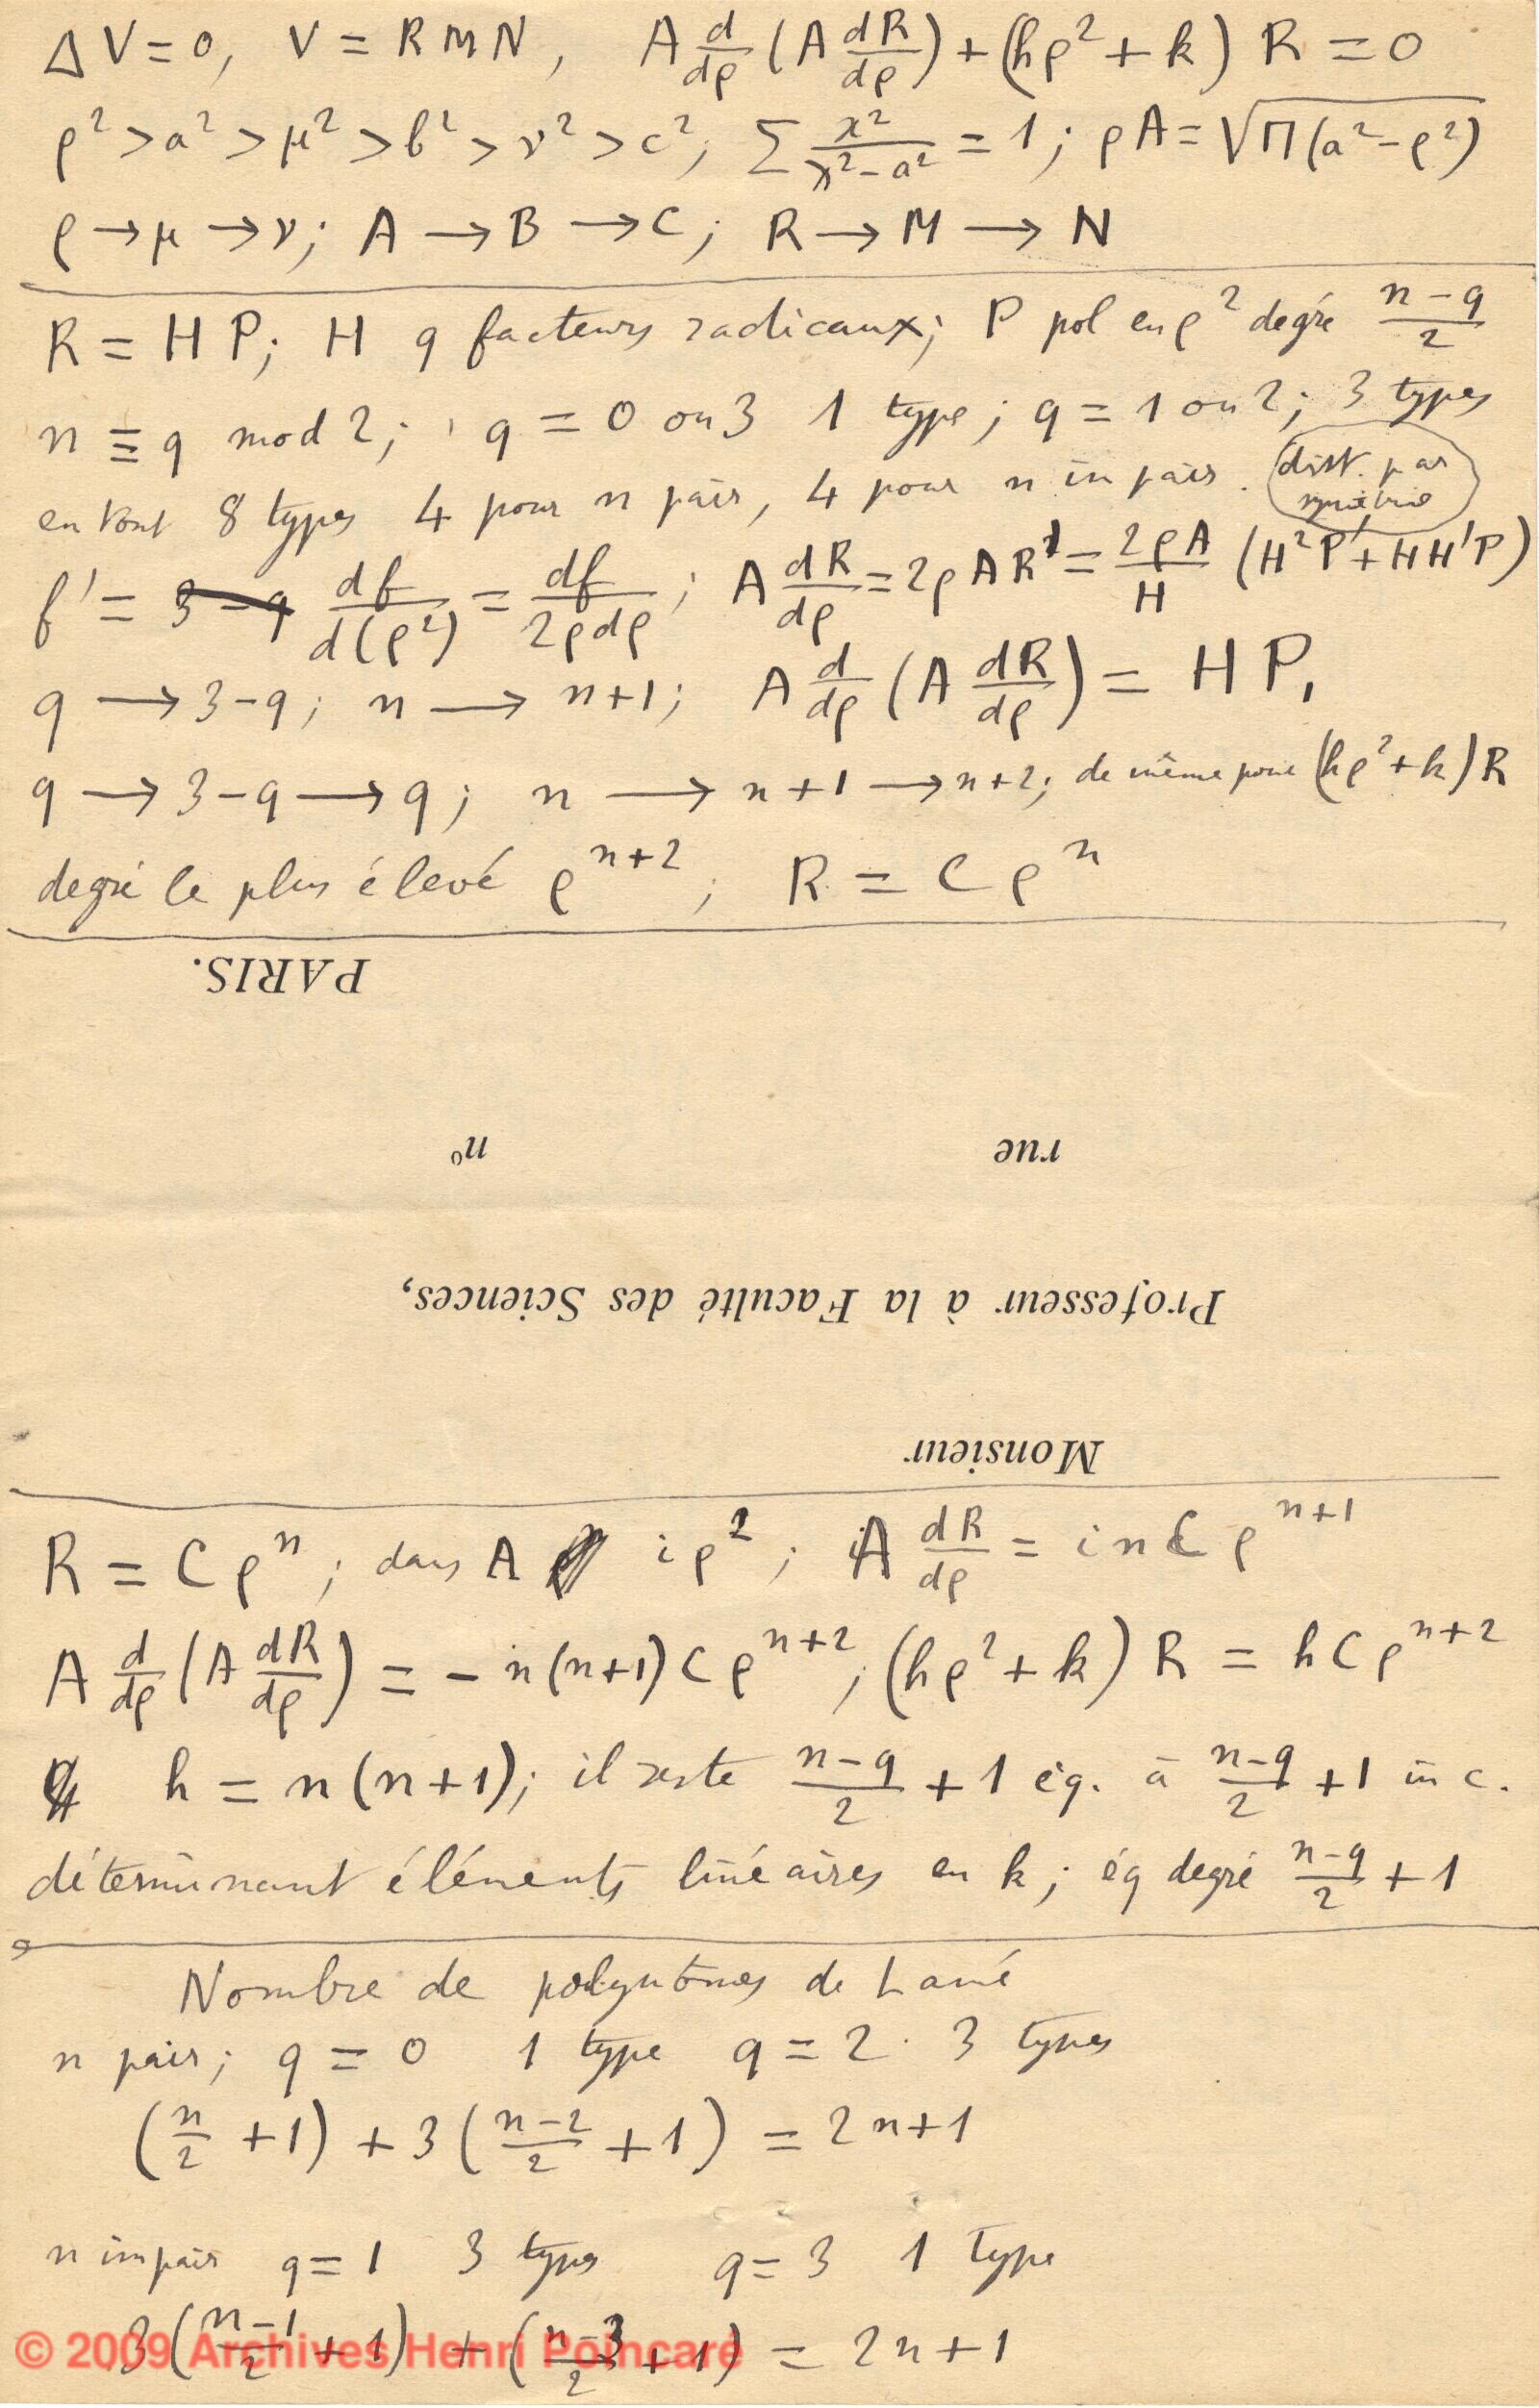 ΔV = 0, V = RMN, A d/dρ (A dR/dρ) + (hρ² + k) R = 0
ρ² > a² > μ² > b² > ν² > c²; Σ x²/(x² - a²) = 1; ρA = √Π(a² - ρ²)
ρ → μ → ν; A → B → C; R → M → N
R = HP; H q facteurs radicaux; P pol en ρ² degré (n - q)/2
n ≡ q mod 2; q = 0 ou 3 1 type; q = 1 ou 2; 3 types
en tout 8 types 4 pour n pair, 4 pour n impair. dist. par symétrie
f' = df/d(ρ²) = df/2ρdρ; A dR/dρ = 2ρAR' = 2ρA/H (H²P' + HH'P)
q → 3 - q; n → n+1; A d/dρ (A dR/dρ) = HP₁
q → 3 - q → q; n → n+1 → n+2; de même pour (hρ² + k)R
degré le plus élevé ρⁿ⁺²; R = Cρⁿ
PARIS.
rue nº
Professeur à la Faculté des Sciences,
Monsieur
R = Cρⁿ; dans A iρ²; A dR/dρ = inCρⁿ⁺¹
A d/dρ (A dR/dρ) = -n(n+1)Cρⁿ⁺²; (hρ² + k) R = hCρⁿ⁺²
h = n(n+1); il reste (n-q)/2 + 1 éq. à (n-q)/2 + 1 inc.
déterminant éléments linéaires en k; éq degré (n-q)/2 + 1
Nombre de polynômes de Lamé
n pair; q = 0 1 type q = 2. 3 types
(n/2 + 1) + 3((n-2)/2 + 1) = 2n+1
n impair q = 1 3 types q = 3 1 type
3((n-1)/2 + 1) + ((n-3)/2 + 1) = 2n+1
© 2009 Archives Henri Poincaré